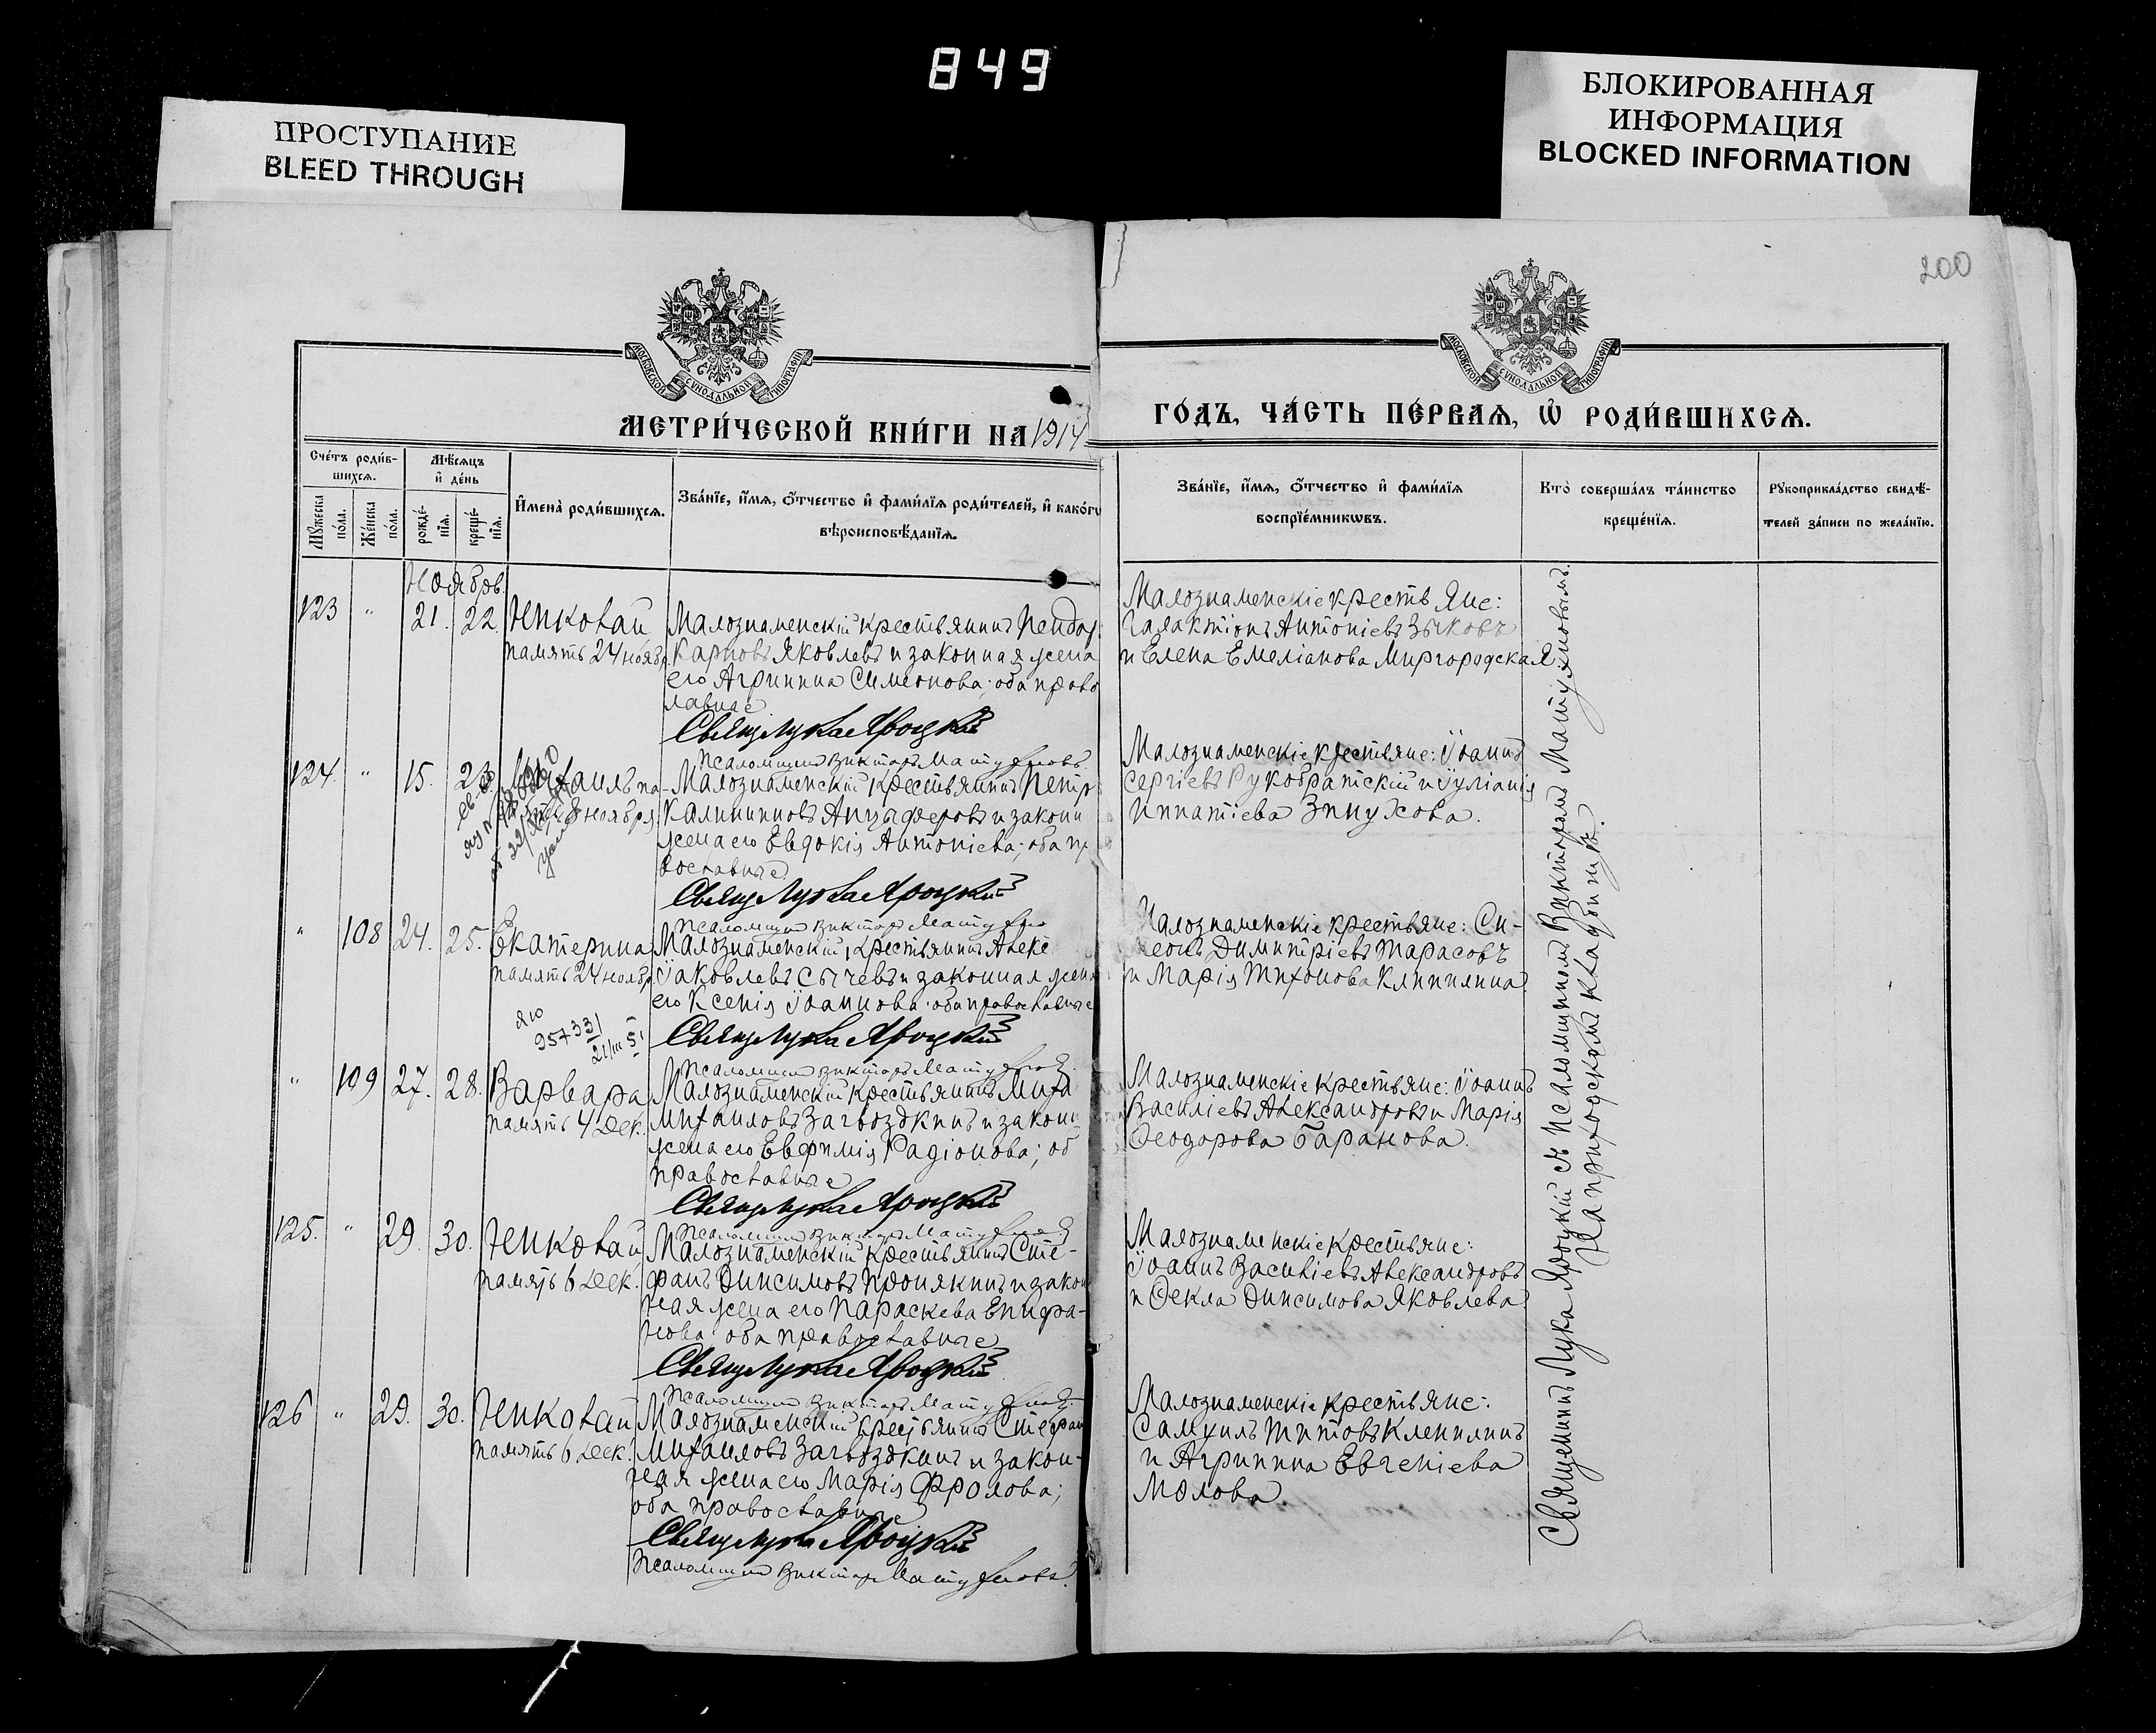 849
ПРОСТУПАНИЕ
BLEED THROUGH
БЛОКИРОВАННАЯ
ИНФОРМАЦИЯ
BLOCKED INFORMATION
200
МОСКОВСКОЙ СУНОДАЛЬНОЙ ТИПОГРАФІИ
МОСКОВСКОЙ СУНОДАЛЬНОЙ ТИПОГРАФІИ
МЕТРИ́ЧЕСКОЙ КНИ́ГИ НА 1914
ГО́ДЪ, ЧА́СТЬ ПЕ́РВАѦ, Ѽ РОДИ́ВШИХСѦ.
Сче́тъ роди́в-
шихсѧ.
Мѣ́сѧцъ
и҆ де́нь
Мꙋжеска
по́ла.
Же́нска
по́ла.
рожде́-
нїѧ.
креще́-
нїѧ.
И҆мена̀ роди́вшихсѧ.
Зва́нїе, и҆́мѧ, ѻ҆́тчество и҆ фами́лїѧ роди́телей, и҆ како́гѡ
вѣроисповѣ́данїѧ.
Зва́нїе, и҆́мѧ, ѻ҆́тчество и҆ фами́лїѧ
воспрїе́мникѡвъ.
Кто̀ соверша́лъ та́инство
креще́нїѧ.
Рꙋкоприкла́дство свидѣ́-
телей за́писи по жела́нїю.
Ноябрь
123 " 21. 22. Николай
память 24 нояб.
Малознаменскій крестьянинъ
Карповъ Яковлевъ и законная жена
его Агриппина Симеонова; оба право
славные
Свящ Лука Яроцкій
Псаломщикъ Викторъ Матухновъ
Малознаменскіе крестьяне:
Галактіонъ Антоніевъ Зыковъ
и Елена Емеліанова Миргородская.
124. " 15. 23. Михаилъ па-
8 ноября
Малознаменскій крестьянинъ Петр
Калинниковъ Анцыферовъ и законн
жена его Евдокія Антоніева; оба пр
вославные
Свящ Лука Яроцкій
Псаломщикъ Викторъ Матухно
Малознаменскіе крестьяне: Іоаннъ
Сергіевъ Рукобратскій и Іуліанія
Ипатіева Зинухова.
" 108 24. 25. Екатерина
память 24 ноябр
957331
21/III 51
Малознаменскій крестьянинъ Алекс
Іаковлевъ Сычевъ и законная жена
его Ксенія Іоаннова оба православные
Свящ Лука Яроцкій
Псаломщикъ Викторъ Матухновъ
Малознаменскіе крестьяне: Си-
меонъ Димитріевъ Тарасовъ
и Марія Тихонова Клипилина
" 109 27. 28. Варвара
память 4 Дек.
Малознаменскій крестьянинъ Миха
Михаиловъ Загвоздкинъ и законн
жена его Евфимія Радіонова; об
православные
Свящ Лука Яроцкій
Псаломщикъ Викторъ Матухновъ
Малознаменскіе крестьяне: Іоаннъ
Василіевъ Александровъ и Марія
Ѳеодорова Баранова.
125. " 29. 30. Николай
память 6 Дек.
Малознаменскій крестьянинъ Сте-
фанъ Онисимовъ Пронякинъ и закон
ная жена его Параскева Епифа-
нова оба православные
Свящ Лука Яроцкій
Псаломщикъ Викторъ Матухновъ
Малознаменскіе крестьяне:
Іоаннъ Василіевъ Александровъ
и Ѳекла Онисимова Яковлева
126 " 29. 30. Николай
память 6 Дек.
Малознаменскій крестьянинъ Стефан
Михаиловъ Загвоздкинъ и закон-
ная жена его Марія Фролова;
оба православные
Свящ Лука Яроцкій
Псаломщикъ Викторъ Матухновъ.
Малознаменскіе крестьяне:
Самуилъ Титовъ Кленилинъ
и Агриппина Евгеніева
Священникъ Лука Яроцкій съ Псаломщикомъ Викторомъ Матухновымъ.
На приходскомъ кладбищѣ.